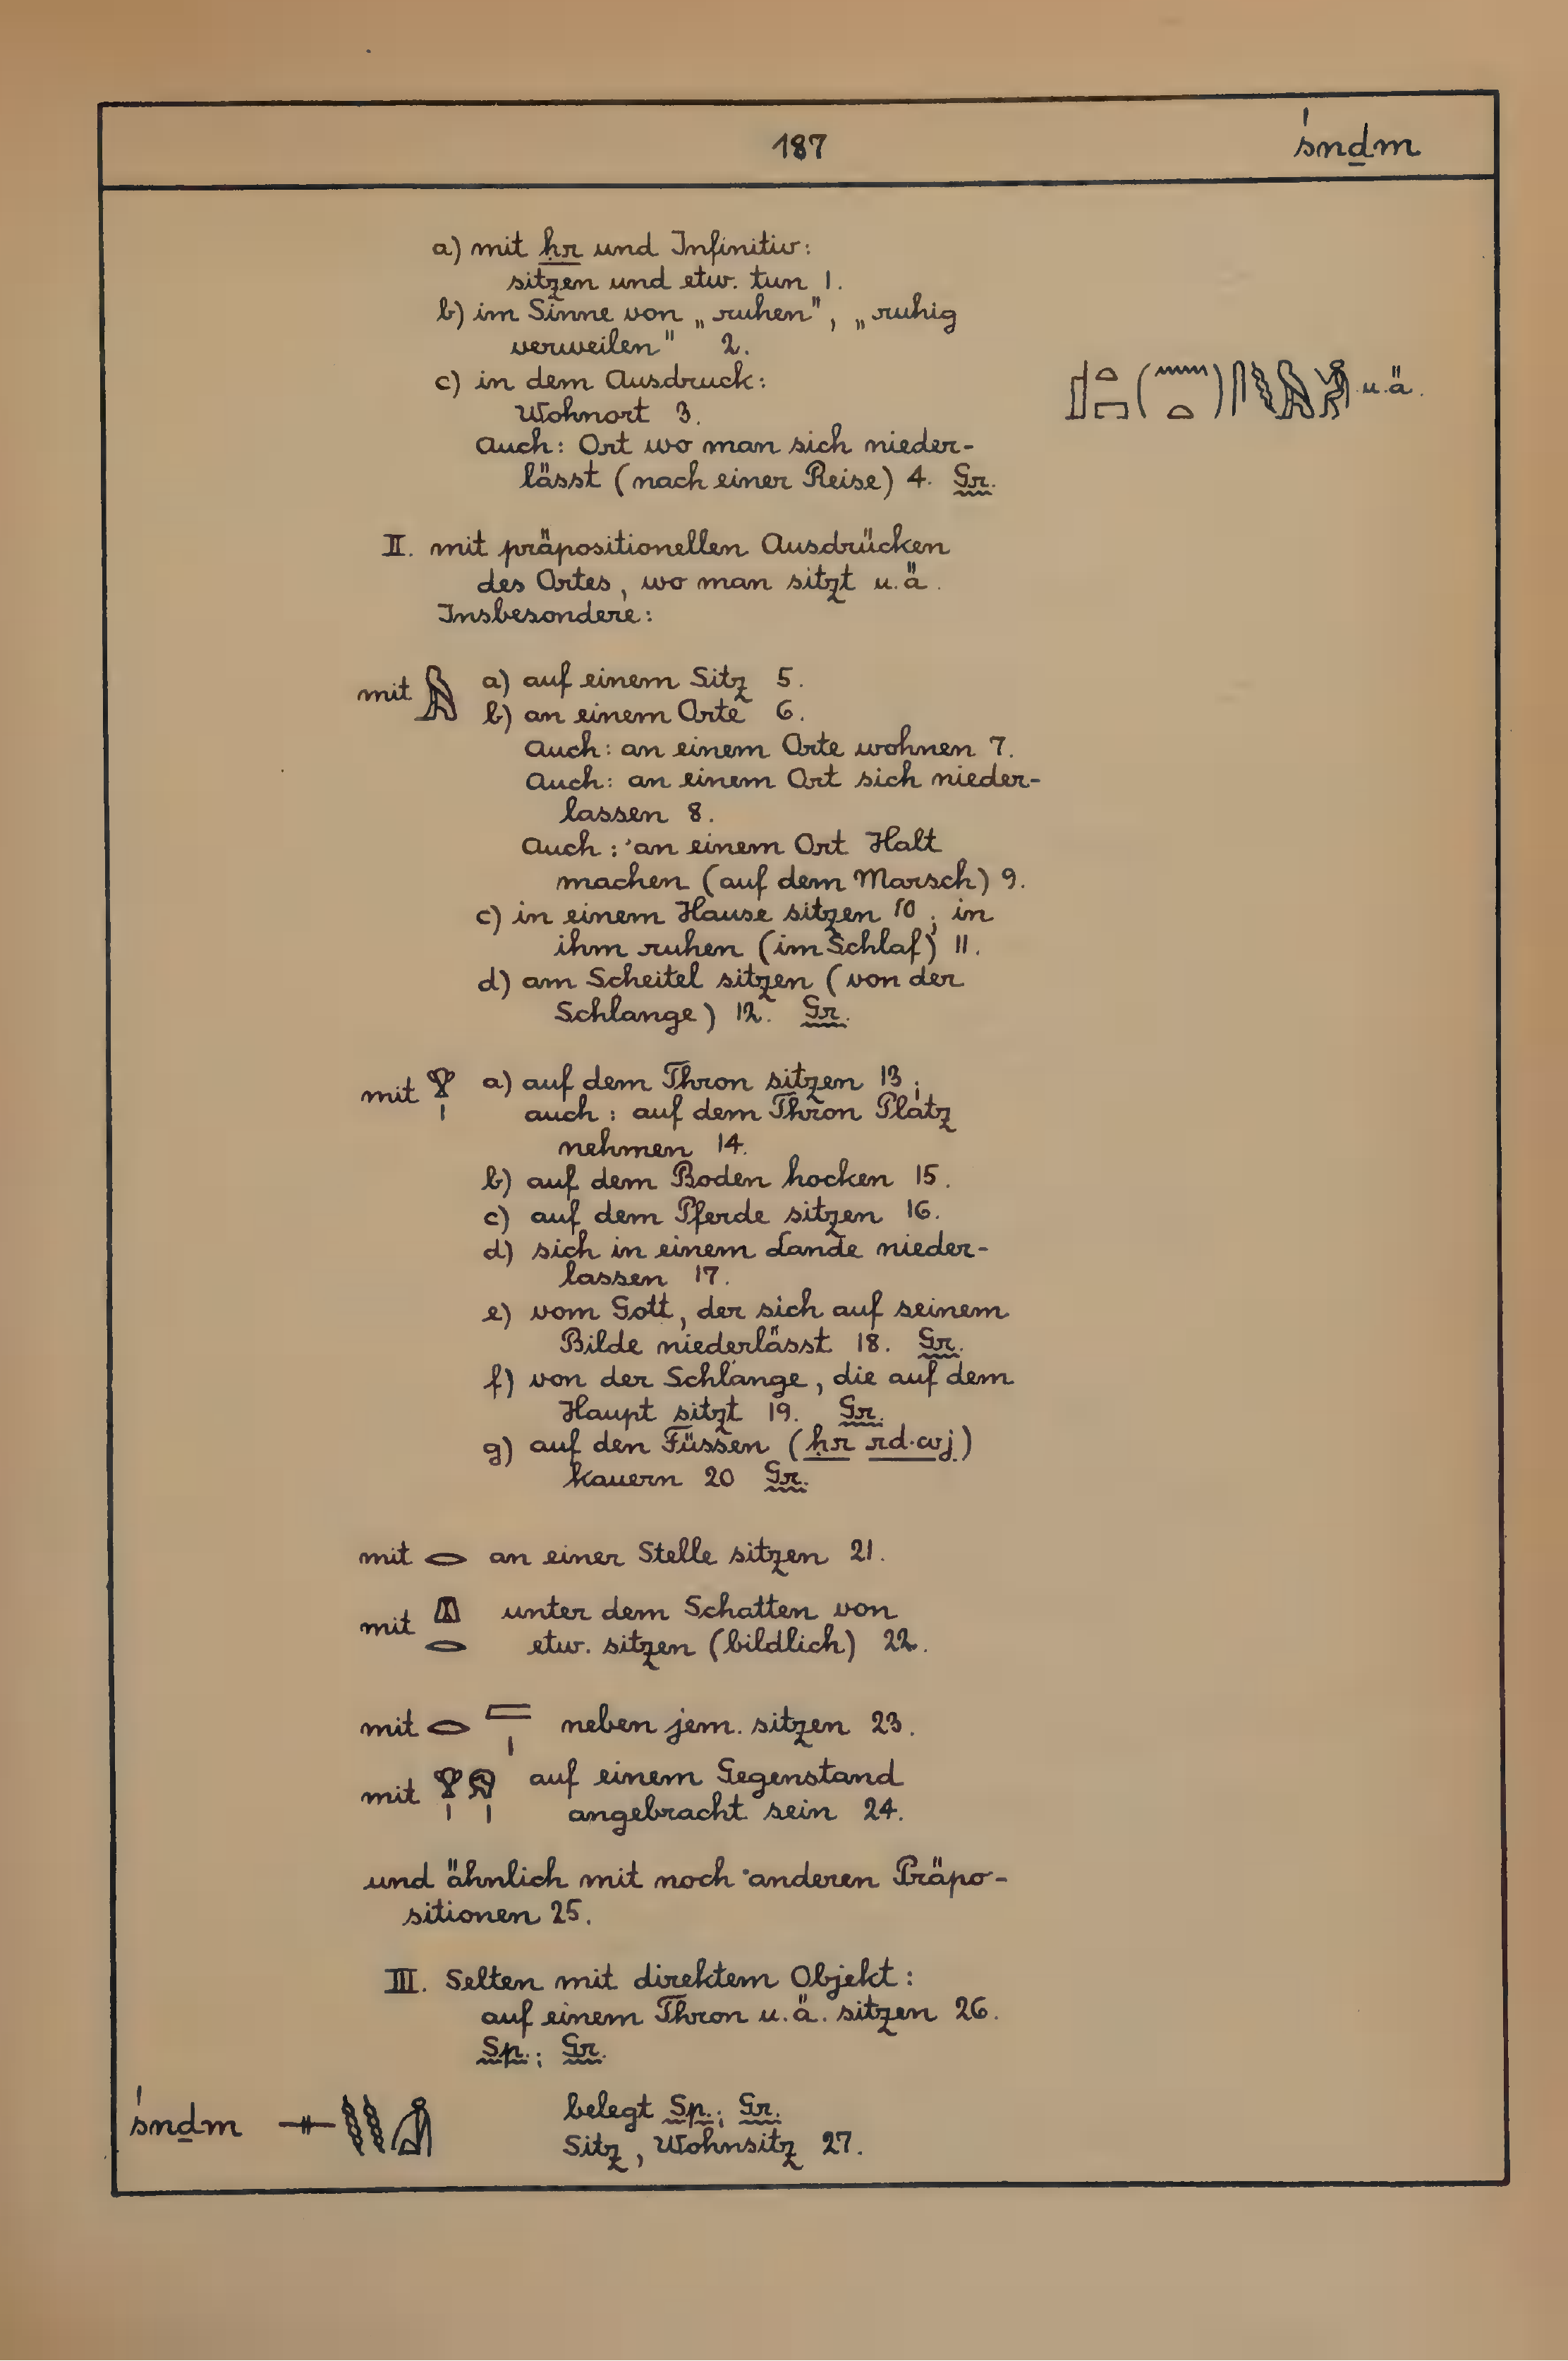 187 śnḏm
a) mit ḥr und Infinitiv:
sitzen und etw. tun 1.
b) im Sinne von „ruhen", „ruhig
verweilen" 2.
c) in dem Ausdruck: u.ä.
Wohnort 3.
Auch: Ort wo man sich nieder-
lässt (nach einer Reise) 4. Gr.
II. mit präpositionellen Ausdrücken
des Ortes, wo man sitzt u.ä.
Insbesondere:
mit 𓅓 a) auf einem Sitz 5.
b) an einem Orte 6.
Auch: an einem Orte wohnen 7.
Auch: an einem Ort sich nieder-
lassen 8.
Auch: an einem Ort Halt
machen (auf dem Marsch) 9.
c) in einem Hause sitzen 10; in
ihm ruhen (im Schlaf) 11.
d) am Scheitel sitzen (von der
Schlange) 12. Gr.
mit 𓁷𓏤 a) auf dem Thron sitzen 13;
auch: auf dem Thron Platz
nehmen 14.
b) auf dem Boden hocken 15.
c) auf dem Pferde sitzen 16.
d) sich in einem Lande nieder-
lassen 17.
e) vom Gott, der sich auf seinem
Bilde niederlässt 18. Gr.
f) von der Schlange, die auf dem
Haupt sitzt 19. Gr.
g) auf den Füssen (ḥr rd·wj)
kauern 20 Gr.
mit 𓂋 an einer Stelle sitzen 21.
mit 𓌨𓂋 unter dem Schatten von
etw. sitzen (bildlich) 22.
mit 𓂋𓐞𓏤 neben jem. sitzen 23.
mit 𓁷𓏤𓁶𓏤 auf einem Gegenstand
angebracht sein 24.
und ähnlich mit noch anderen Präpo-
sitionen 25.
III. Selten mit direktem Objekt:
auf einem Thron u.ä. sitzen 26.
Sp.; Gr.
śnḏm belegt Sp.; Gr.
Sitz, Wohnsitz 27.